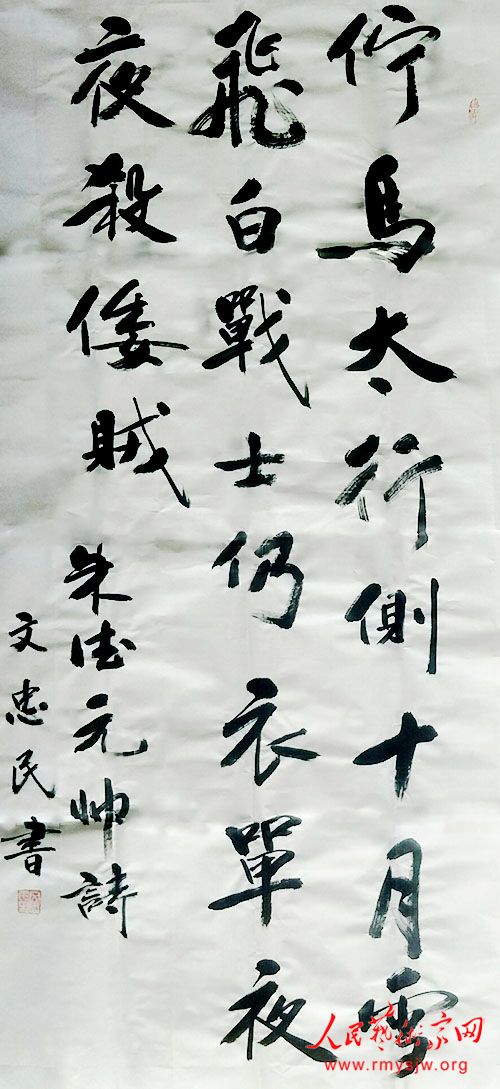 佇馬太行側十月雪
飛白戰士仍衣單夜
夜殺倭賊
朱德元帥詩
文忠民書
人民藝術家网
www.rmysjw.org